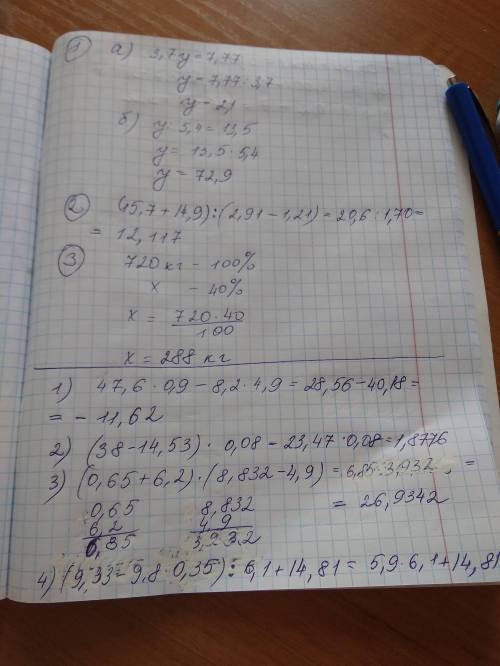 ① а) 3,7y = 7,77
y = 7,77 : 3,7
y = 2,1
б) y : 5,4 = 13,5
y = 13,5 · 5,4
y = 72,9
② (15,7 + 4,9) : (2,91 – 1,21) = 20,6 : 1,70 =
= 12,117
③ 720 кг – 100%
x – 40%
x = 720 · 40
100
x = 288 кг
1) 47,6 · 0,9 – 8,2 · 4,9 = 28,56 – 40,18 =
= – 11,62
2) (38 – 14,53) · 0,08 – 23,47 · 0,08 = 1,8776
3) (0,65 + 6,2) · (8,832 – 4,9) = 6,85 · 3,932 =
0,65 8,832 = 26,9342
6,2 4,9
6,85 3,932
4) (9,33 – 9,8 · 0,35) : 6,1 + 14,81 = 5,9 · 6,1 + 14,81